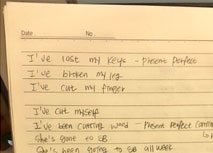 Date No
I've lost my keys - present perfect
I've broken my leg
I've cut my finger
I've cut myself
I've been cutting wood - Present Perfect
She's gone to SB
She's been going to SB all week